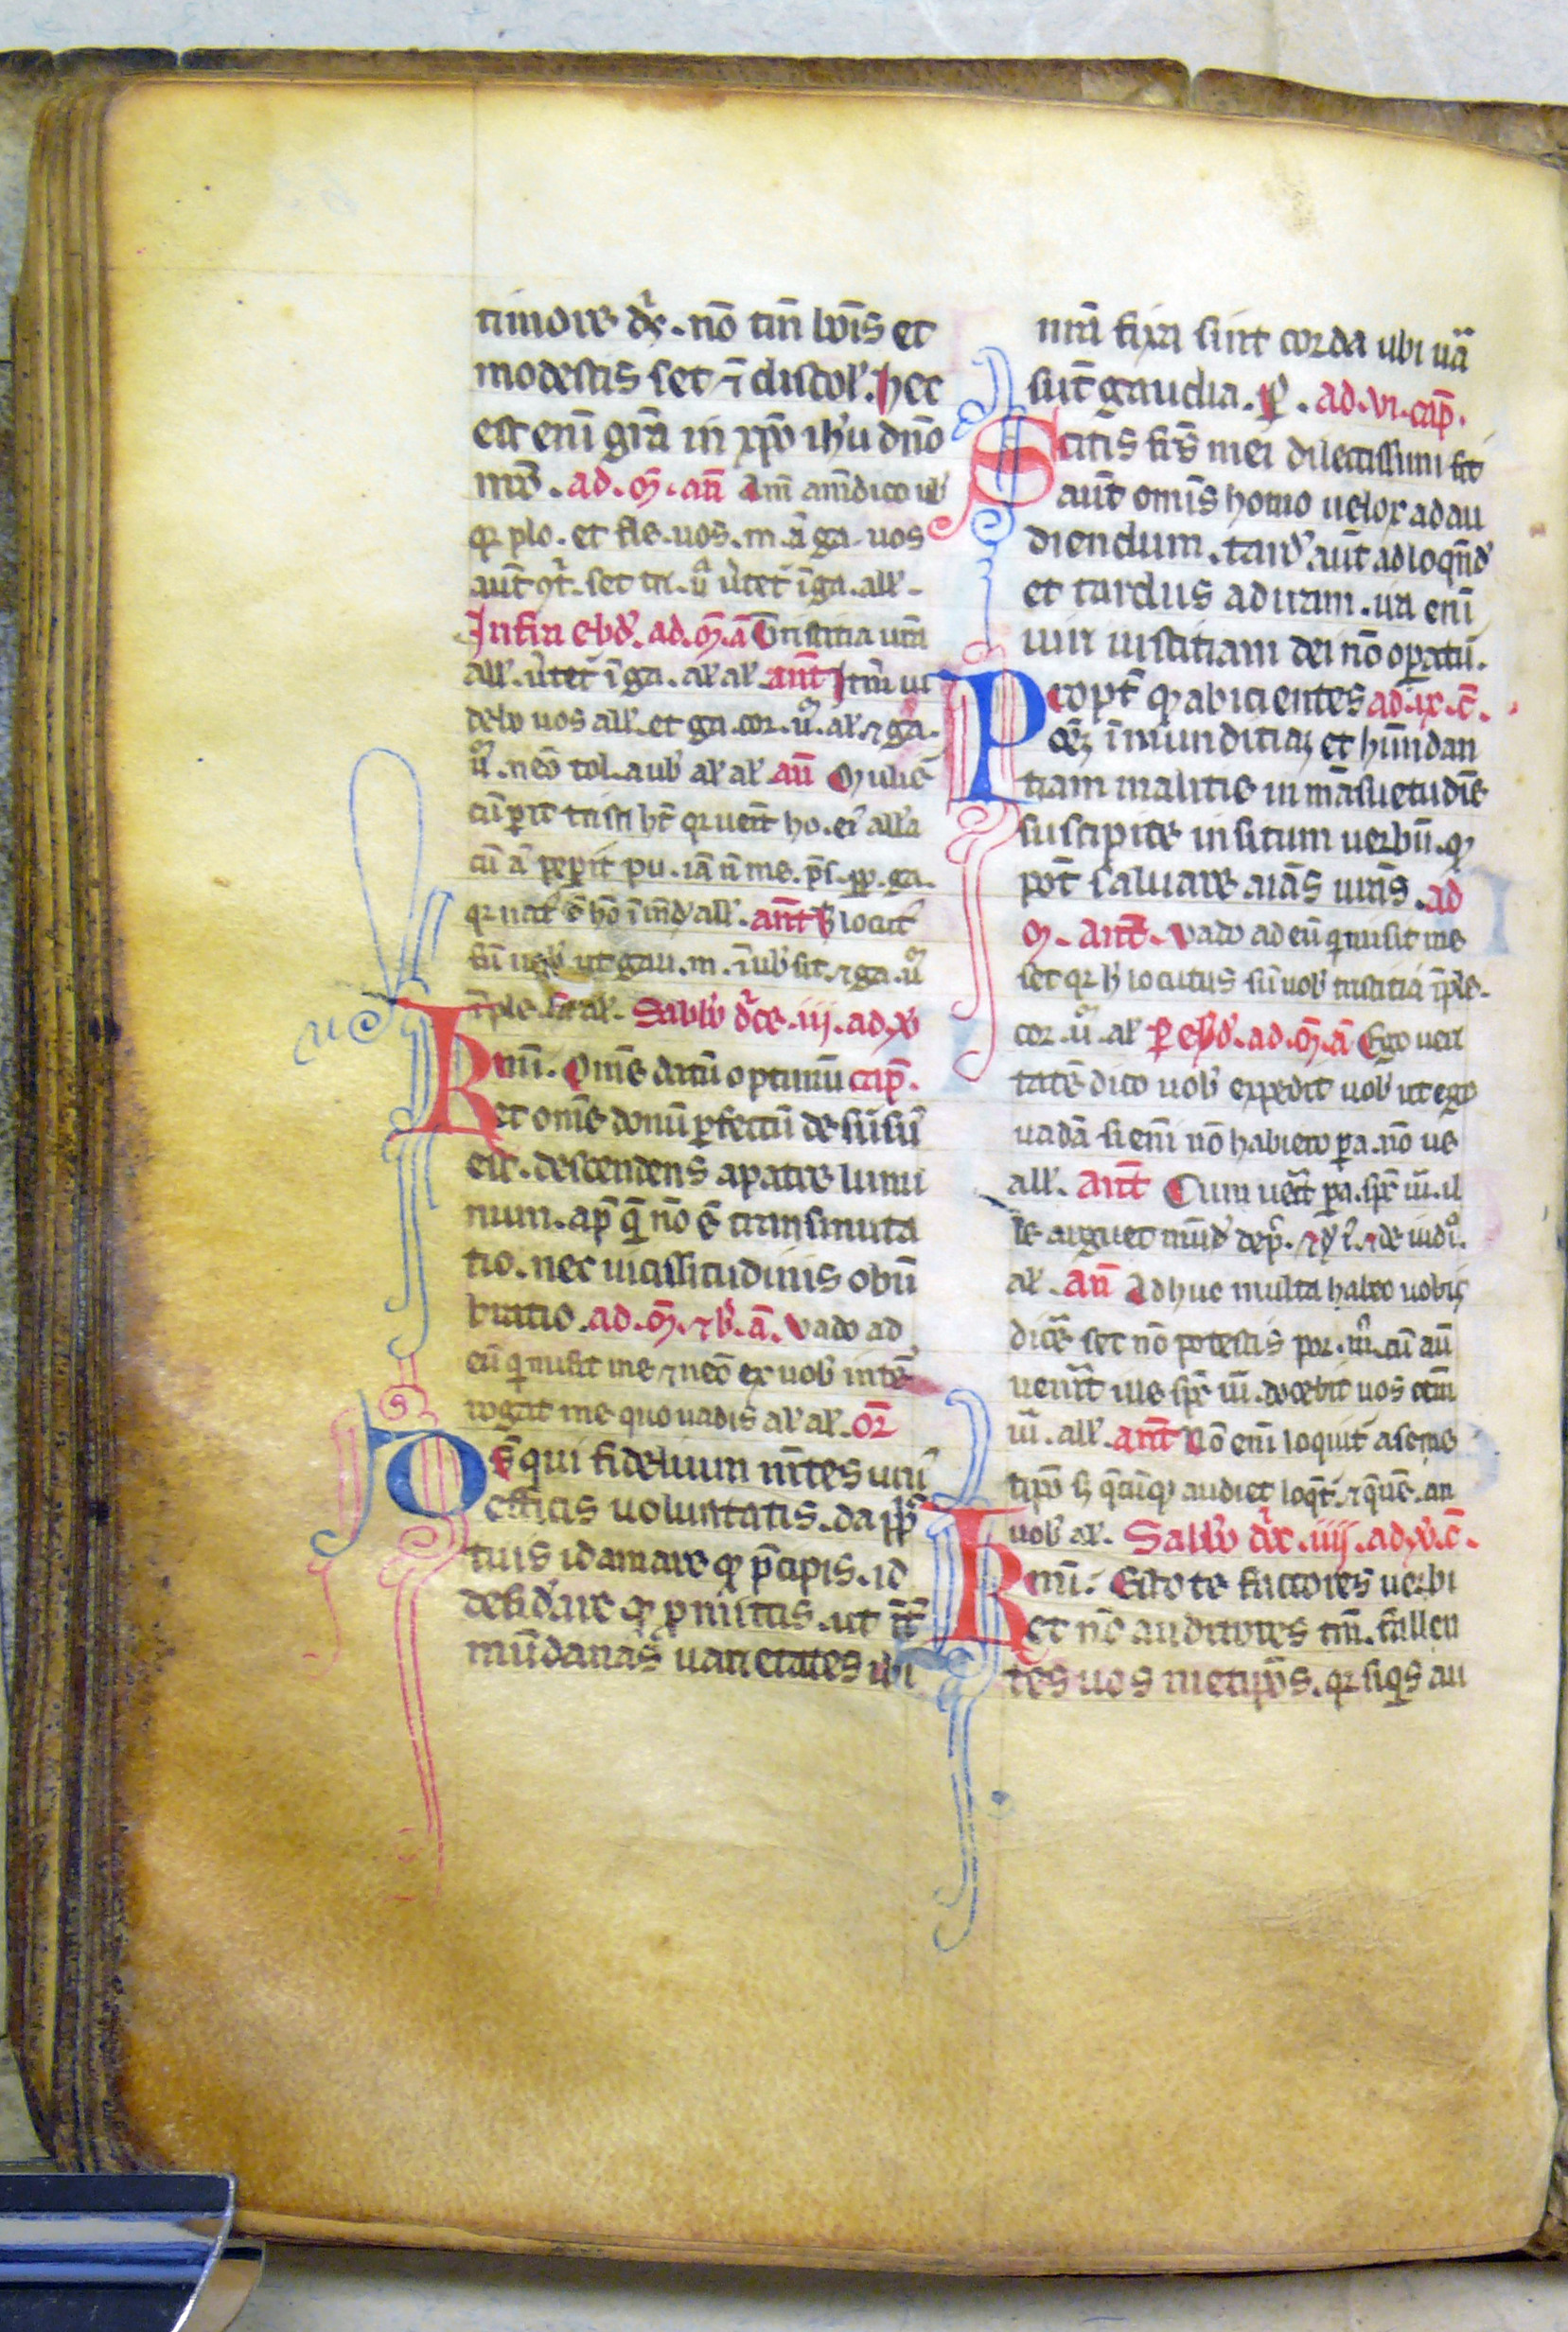 timore dr̄. nō tm̄ bōis et
modestis set ⁊ discol'. hec
est enī grā in xp̄o ih'u dn̄o
nrō. ad. m̄. an̄ Am̄ am̄ dico uo
qr plo. et fle. uos. m. ā ga. uos
aut̄ 9t̄. set tr̄. ū u̓tet̄ ī ga. all'.
Infra ebd'. ad. m̄. ā Tristitia urā
all'. u̓tet̄ ī ga. al' al' ant̄ Itm̄ ui
debo uos all'. et ga. cor. ū. al' ⁊ ga.
ū. neō tol. a uob' al' al' an̄ Mulie
cū pit tristi ht̄ qr uenit ho. ei' all'a
cū ā pep̄it pu. iā n̄ me. p̄s. pp. ga.
qr nat' ē hō ī mūd' all'. ant̄ h' locut'
sū uob' ut gau. m. ī uob' sit. ⁊ ga. ū
īple. al' al'. Sabb'o dr̄ce. iij. ad. xv
Kmi. Omē datū optimū cap̄.
et omē donū p̄fectū de sūsū
est. descendens a patre lumi
num. ap̄ q̄ nō ē transmuta
tio. nec uicissitudinis obū
bratio. ad. m̄. ⁊ b'. ā. Vado ad
eū qi misit me ⁊ neō ex uob' inte
rogat me quo uadis al' al'. or̄
Ds̄ qui fidelium m̄tes uni'
efficis uoluntatis. da ppl'
tuis id amare qd p̄cipis. id
desid'are qd p̄mittis. ut īt'
mūdanas uarietates ibi
nrā fixa sint corda ubi uā
sūt gaudia. P. ad. vi. cap̄.
Scitis frs̄ mei dilectissimi sit
aut̄ omis homo uelox ad au
diendum. tard' aut̄ ad loqn̄d'
et tardus ad iram. ira enī
uiri iustitiam dei nō opatur.
Propt̄ qd abicientes ad. ix. c̄.
oēz īmunditiaz et hūndan
tiam malitie in māsuetudīe
suscipite insitum uerbū. qd
pot̄ saluare aiās uras. ad
m. ant̄. Vado ad eū qi misit me
set qr h' locutus sū uob' tristitia īple.
cor. ū. al' P ebd'. ad. m̄. ā Ego ueri
tatē dico uob' expedit uob' ut ego
uadā si enī nō habiero pa. nō ue
all'. ant̄ Cum ueīt pa. spr̄ ūi. il
le arguet mūd' de p̄. ⁊ d' ī. ⁊ de iudi°.
al'. an̄ Adhuc multa habeo uobis
dicē set nō potestis por. m̄. cū aū
uen̄it ille spr̄ ūi. docebit uos oēm
ūi. all'. ant̄ Nō enī loquit' a seme
tipo s; q̄cūq; audiet loqt̄. ⁊ q̄ uē. an
uob' al'. Sabb'o dr̄. iiij. ad. xv. c̄.
Kmi. Estote factores uerbi
et nō auditores tm̄. fallen
tes uos metipos. qr siqs au